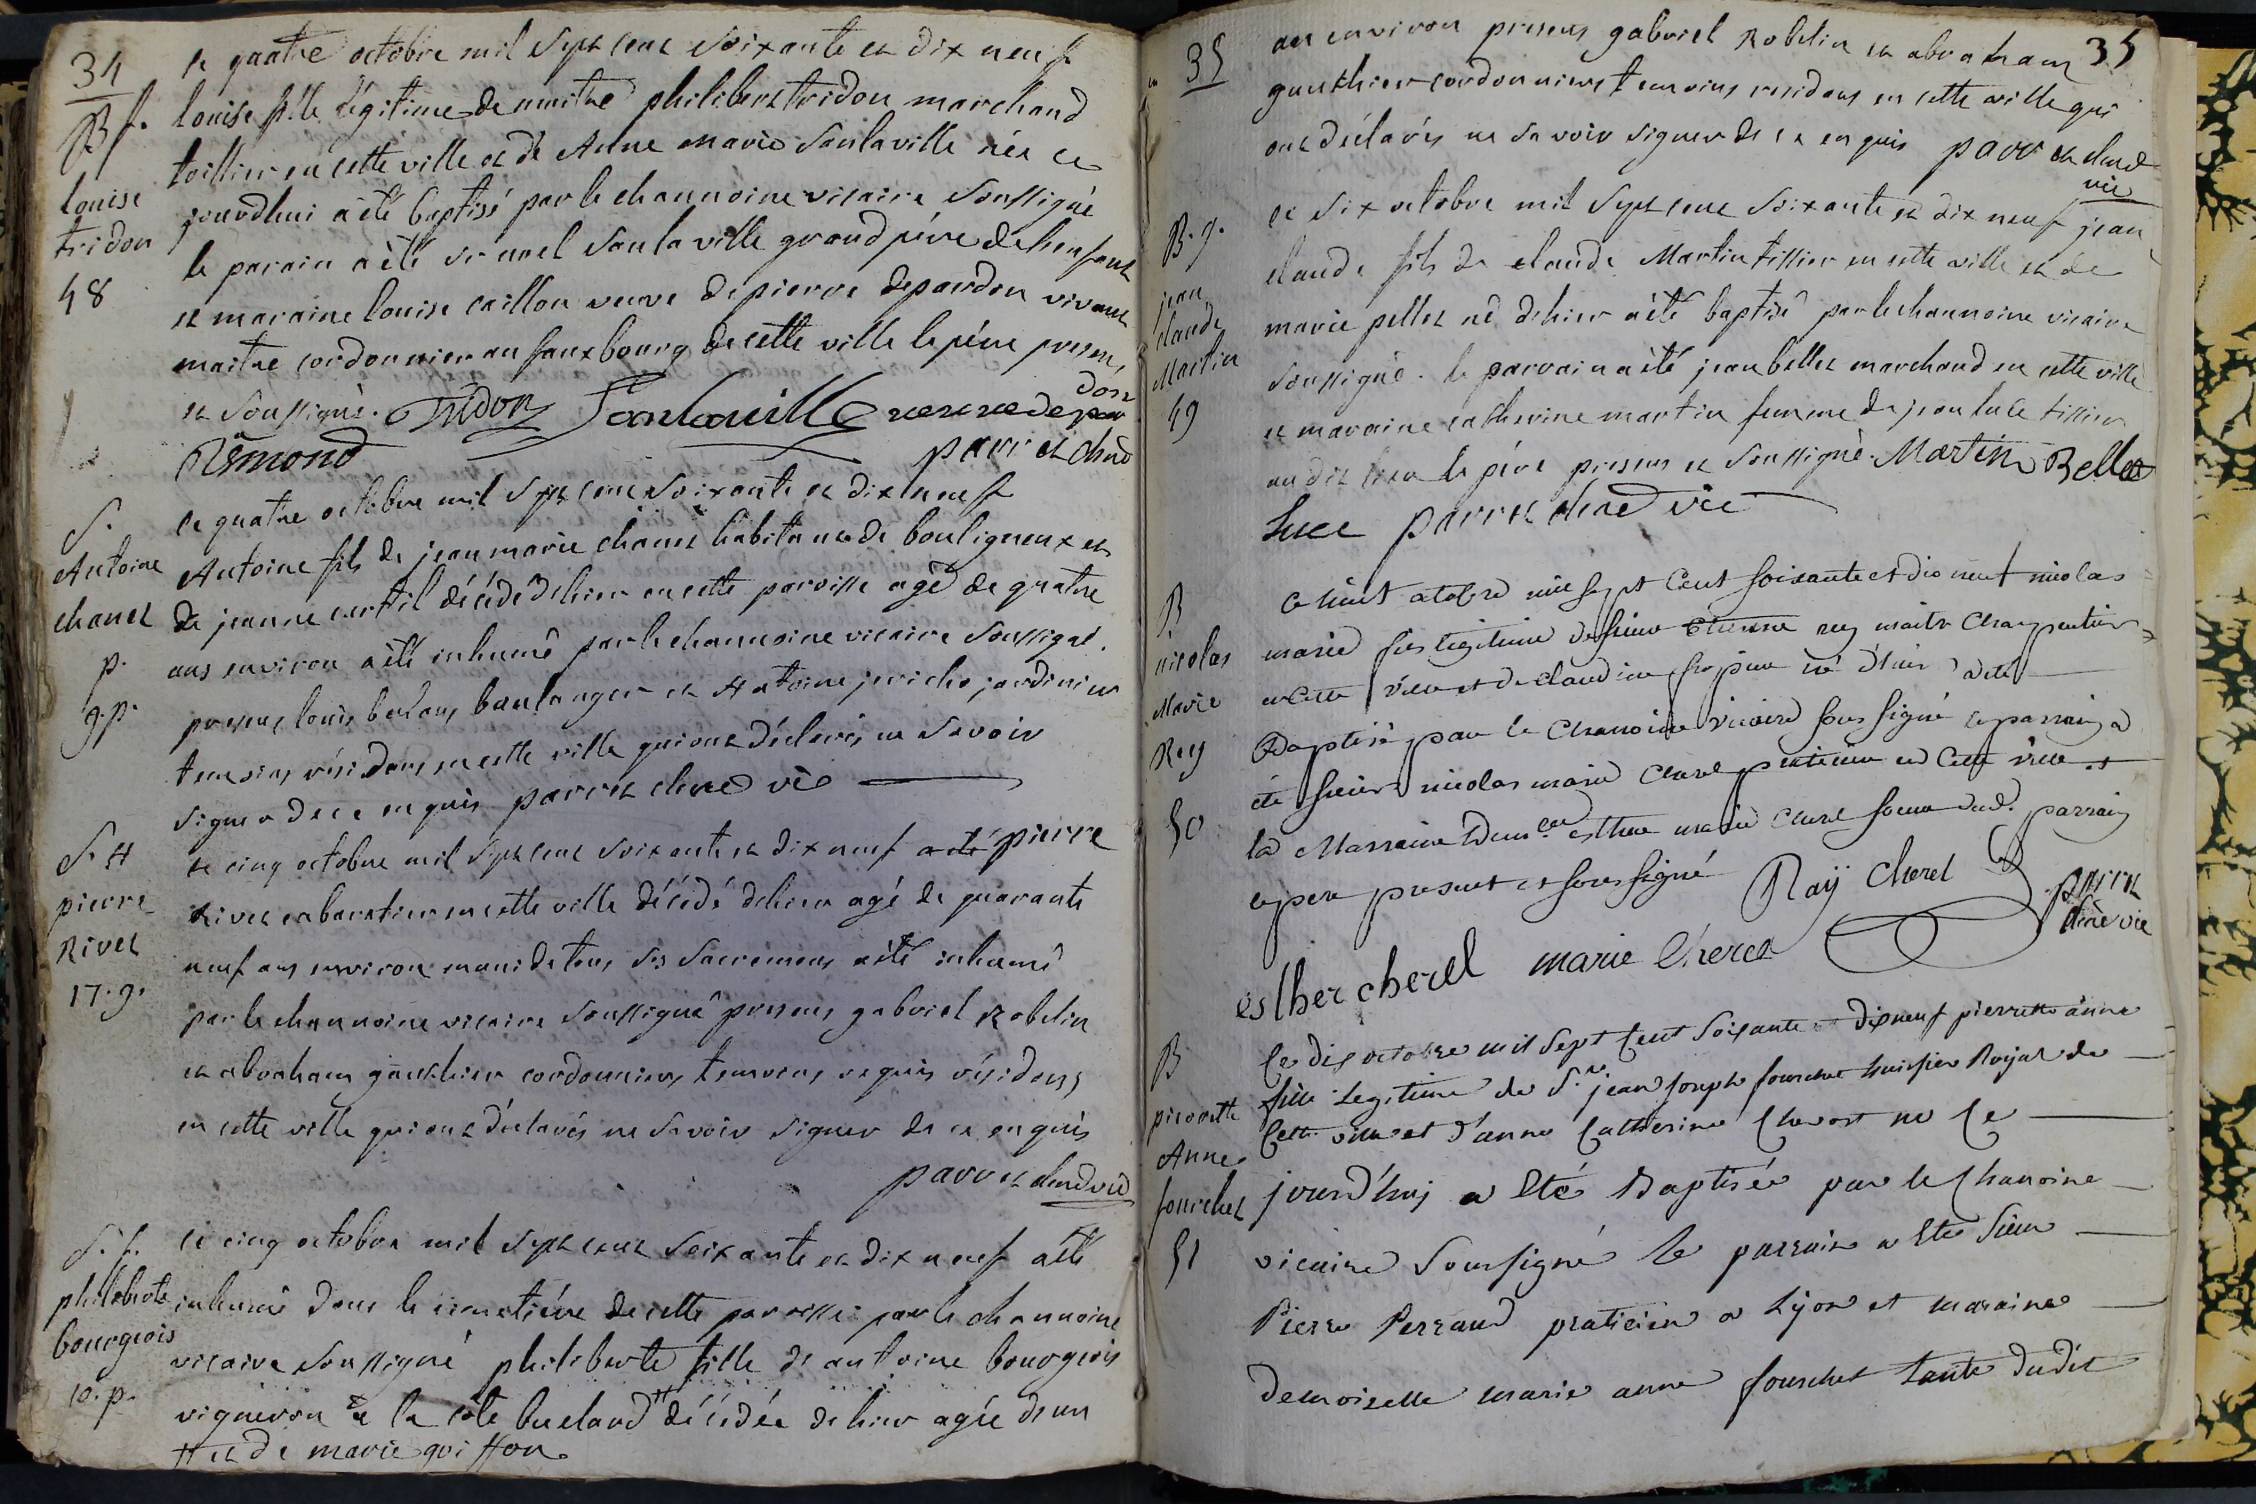 34
le quatre octobre mil sept cent soixante et dix neuf
B f. louise tridon 48
louise fille légitime de maitre philibert tridon marchand
toillier en cette ville et de Anne marie Sanlaville née ce
jourdhui a èté baptisé par le channoine vicaire soussigné
le parain a èté sr noel Sanlaville grand pére de lenfant
et maraine louise caillon veuve de pierre depardon vivant
maitre cordonnier au fauxbourg de cette ville le pére present
et soussigné. Tridon Sanlaville veuve depardon
Rémond parret chne
S. Antoine chanet p. g.p.
le quatre octobre mil sept cent soixante et dix neuf
Antoine fils de jean marie chanet habitant de bouligneux et
de jeanne curtil décédé dhier en cette paroisse agé de quatre
ans environ a èté inhumé par le channoine vicaire soussigné.
presens louis berlans boulanger et Antoine jericho jardinier
temoins résidans en cette ville qui ont déclarés ne savoir
signer de ce enquis parret chne vic
S. H pierre Rivet 17. g.
le cinq octobre mil sept cent soixante et dix neuf a été pierre
Rivet cabaretier en cette ville décédé dhier agé de quarante
neuf ans environ muni de tous ses sacremens a èté inhumé
par le channoine vicaire soussigné presens gabriel Robelin
et abraham gauthier cordonniers temoins requis résidens
en cette ville qui ont déclarés ne savoir signer de ce enquis
parret chne vic
S. f. philiberte bourgeois 10. p.
le cinq octobre mil sept cent soixante et dix neuf a èté
inhumé dans le cimetiére de cette paroisse par le channoine
vicaire soussigné philiberte fille de antoine bourgeois
vigneron de la cote décédée dhier agée d'un
# et de marie goiffon
35
35
an environ presens gabriel Robelin et abraham
gauthier cordonniers temoins residans en cette ville qui
ont déclarés ne savoir signer de ce enquis parret chne
vic
B. g. jean claude Martin 49
le six octobre mil sept cent soixante et dix neuf jean
claude fils de claude Martin tissier en cette ville et de
marie pellet né dhier a èté baptisé par le channoine vicaire
soussigné. le parrain a èté jean bellet marchand en cette ville
et maraine catherine martin femme de jean luce tissier
audit lieu le pére present et soussigné. Martin Bellet
Luce parret chne vic
B nicolas Marie Rey 50
ce huit octobre mil sept cent soixante et dix neuf nicolas
marie fils legitime de sieur Etienne rey maitre charpentier
en cette ville et de claudine né d'hier a eté
Baptisé par le chanoine vicaire sous signé le parrain a
été sieur nicolas marie cherel praticien en cette ville et
la Marraine demlle esther marie cherel soeur dud. parrain
le pere present et sous signé Raÿ cherel parret
chne vic
esther cherel marie cherel
B pierrette Anne fourchet 51
Ce dix octobre mil sept Cent soixante et dixneuf pierrette anne
fille Legitime de Sr. jean joseph fourchet huissier Royal de
Cette ville et d'anne Catherine né Ce
jourd'huy a Eté Baptisée par le Chanoine
vicaire Soussigné le parrain a Eté Sieur
Pierre Perraud praticien a Lyon et maraine
demoiselle marie anne fourchet tante dudit